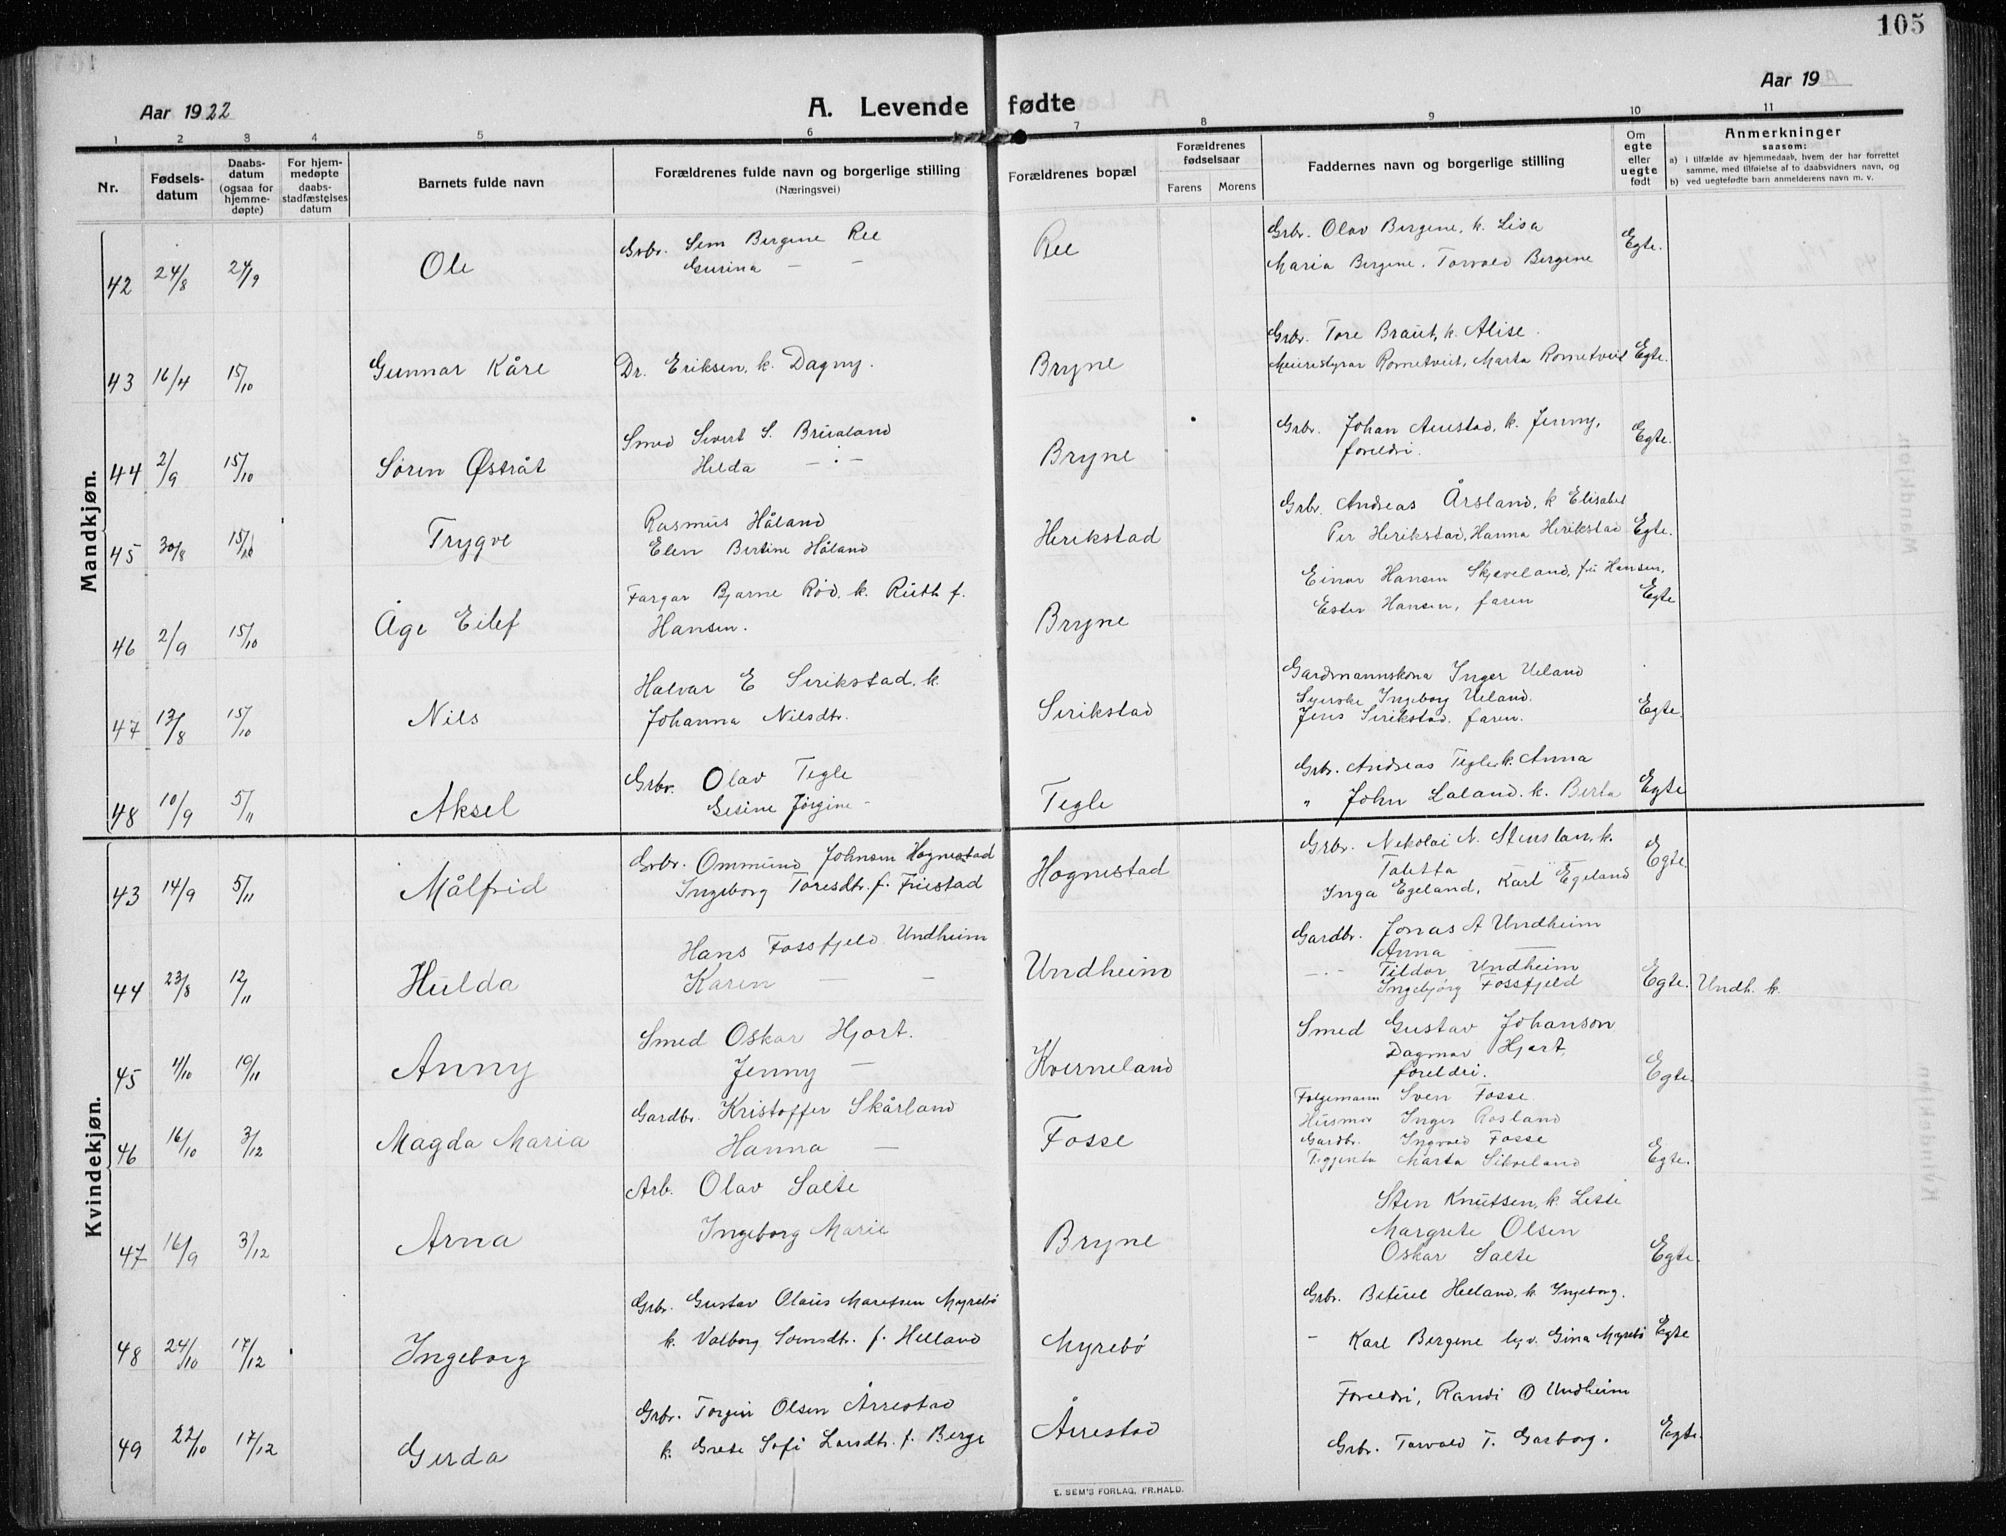 105
Aar 1922
A. Levende fødte
Aar 19
1 2 3 4 5 6 7 8 9 10 11
Nr.
Fødsels-datum
Daabs-datum (ogsaa for hjemme-døpte)
For hjem-medøpte daabs-stadfæstelses datum
Barnets fulde navn
Forældrenes fulde navn og borgerlige stilling (Næringsvei)
Forældrenes bopæl
Forældrenes fødselsaar
Farens Morens
Faddernes navn og borgerlige stilling
Om egte eller uegte født
Anmerkninger
saasom:
a) i tilfælde av hjemmedaab, hvem der har forrettet samme, med tilføielse af to daabsvidners navn, og
b) ved uegtefødte barn anmelderens navn m. v.
Mandkjøn.
42 24/8 24/9 Ole
Grbr. Sem Bergene Ree
Gurina — —
Ree
Grbr. Olav Bergene, k. Lisa
Maria Bergene, Torvald Bergene
Egte.
43 16/4 15/10 Gunnar Kåre
Dr. Eriksen, k. Dagny.
Bryne
Grbr. Tore Braut, k. Alise.
Meieristyrar Rometveit, Marta Rometveit
Egte.
44 2/9 15/10 Søren Østråt
Smed Sivert S. Brualand
Hilda — " —
Bryne
Grbr. Johan Aurstad, k. Jenny,
foreldri.
Egte.
45 30/8 15/10 Trygve
Rasmus Håland
Elen Bertine Håland
Herikstad
Grbr. Andreas Årsland, k Elisabet
Per Herikstad, Hanna Herikstad
Egte.
46 2/9 15/10 Åge Eilef
Fargar Bjarne Rød, k. Ruth f.
Hansen.
Bryne
Einar Hansen Skjeveland, fru Hansen,
Ester Hansen, faren
Egte
47 13/8 15/10 Nils
Halvar E Serikstad, k.
Johanna Nilsdtr.
Serikstad
Gardmannskona Inger Ueland
Syerske Ingeborg Ueland.
Jens Serikstad, faren.
Egte.
48 10/9 5/11 Aksel
Grbr. Olav Tegle
Gesine Jørgine -
Tegle
Grbr. Andreas Tegle k. Anna
" John Laland. k. Berta
Egte
Kvindekjøn.
43 14/9 5/11 Målfrid
Grbr. Ommund Johnsen Hognestad
Ingeborg Toresdtr. f. Friestad
Hognestad
Grbr. Nikolai N. Stenslan, k.
Taletta
Inga Egeland, Karl Egeland
Egte.
44 23/8 12/11 Hulda
Hans Fossfjeld Undheim
Karen — —
Undheim
Gardbr. Jonas A Undheim
Anna —
— " — Tildor Undheim
Ingebjørg Fossfjeld
Egte.
Undh. k.
45 4/10 19/11 Anny
Smed Oskar Hjort.
Jenny —
Kverneland
Smed Gustav Johanson
Dagmar Hjort,
foreldri.
Egte.
46 16/10 3/12 Magda Maria
Gardbr. Kristoffer Skårland
Hanna —
Fosse
Følgemann Sven Fosse
Husmor Inger Rosland
Gardbr. Ingvald Fosse
Marta Sikveland
Egte.
47 16/9 3/12 Arna
Arb. Olav Salte
Ingeborg Marie
Bryne
Sten Knutsen, k. Lisse
Margrete Olsen
Oskar Salte
Egte.
48 24/10 17/12 Ingeborg
Grbr. Gustav Olaus Maretsen Myrebø
k. Valborg Svensdtr. f. Helland
Myrebø
Grbr. Betuel Helland, k Ingeborg.
- Karl Bergene Gina Myrebø
Egte
49 22/10 17/12 Gerda
Grbr. Torger Olsen Årrestad
k. Grete Sofi Larsdtr. f. Berge
Årrestad
Foreldri, Randi O Undheim
Grbr. Torvald T. Garborg.
Egte.
E. SEM'S FORLAG, FR.HALD.